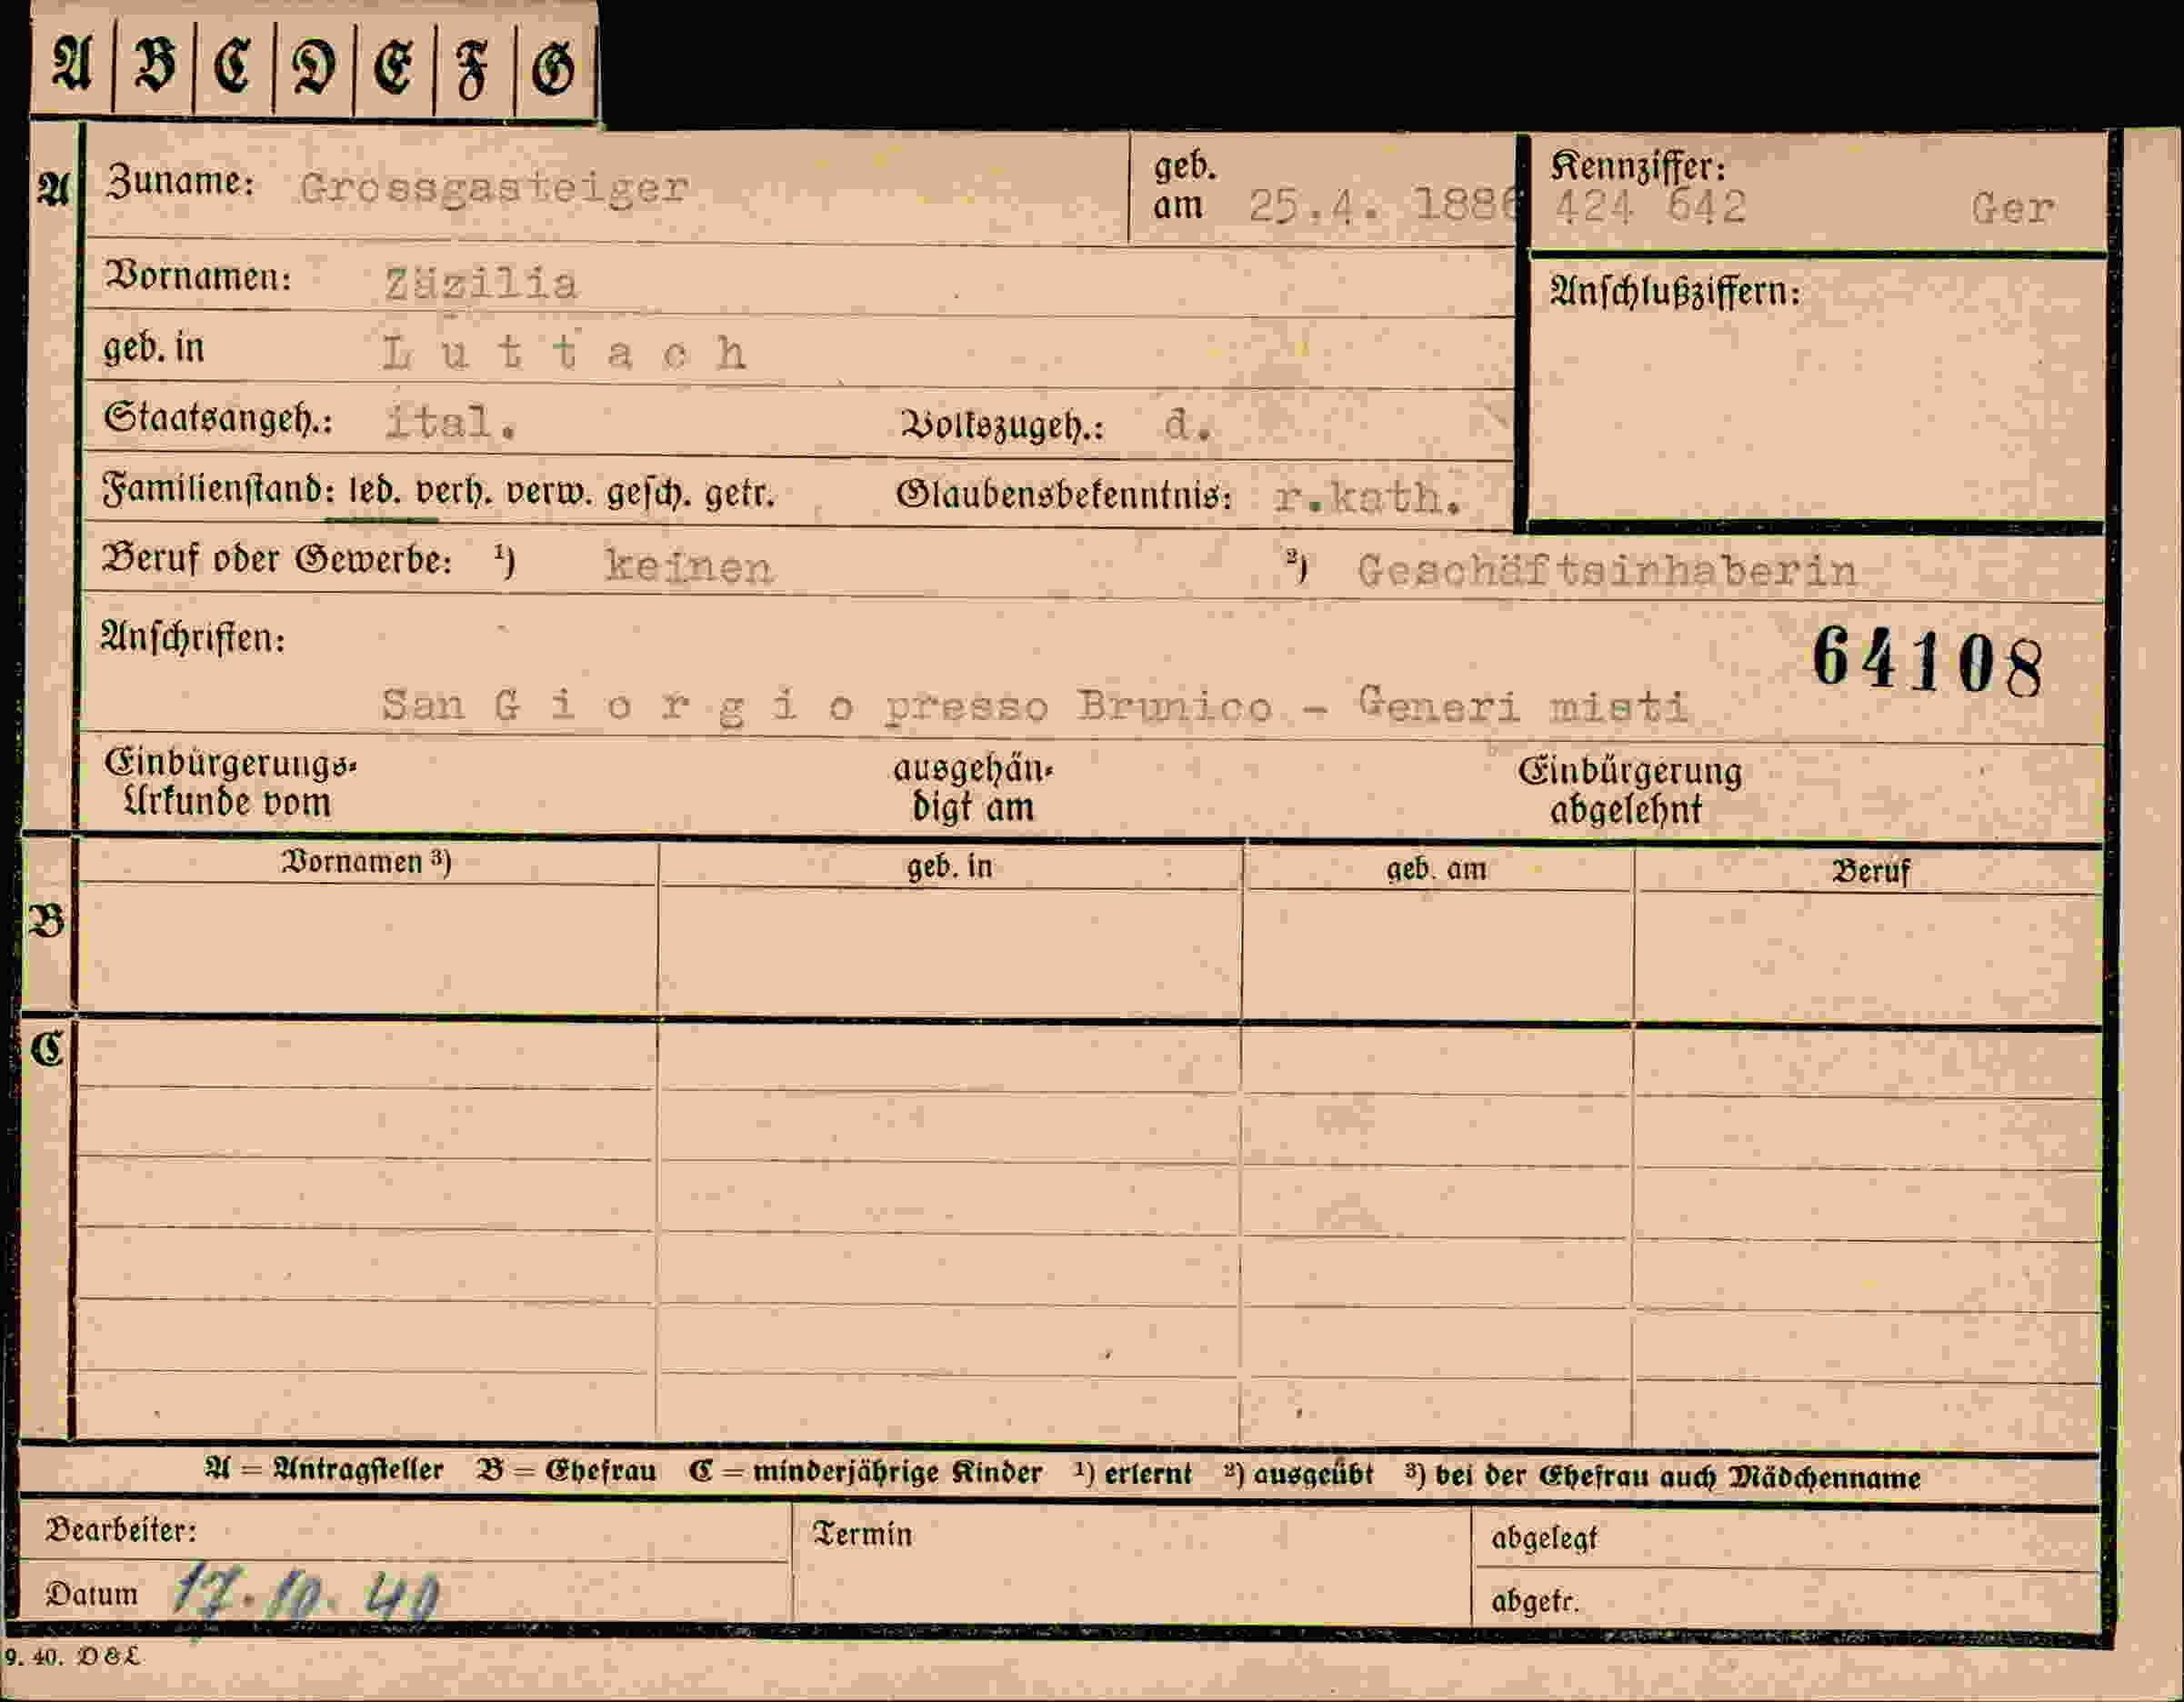 A B C D E F G
A Zuname: Grossgasteiger geb. am 25.4. 1886 Kennziffer: 424 642 Ger
Vornamen: Zäzilia Anschlußziffern:
geb. in Luttach
Staatsangeh.: ital. Volkszugeh.: d.
Familienstand: led. verh. verw. gesch. getr. Glaubensbekenntnis: r.kath.
Beruf oder Gewerbe: ¹) keinen ²) Geschäftsinhaberin
Anschriften: 64108
San Giorgio presso Brunico - Generi misti
Einbürgerungs- ausgehän- Einbürgerung
Urkunde vom digt am abgelehnt
Vornamen ³) geb. in geb. am Beruf
B
C
A = Antragsteller B = Ehefrau C = minderjährige Kinder ¹) erlernt ²) ausgeübt ³) bei der Ehefrau auch Mädchenname
Bearbeiter: Termin abgelegt
Datum 17.10.40 abgetr.
9. 40. D & L